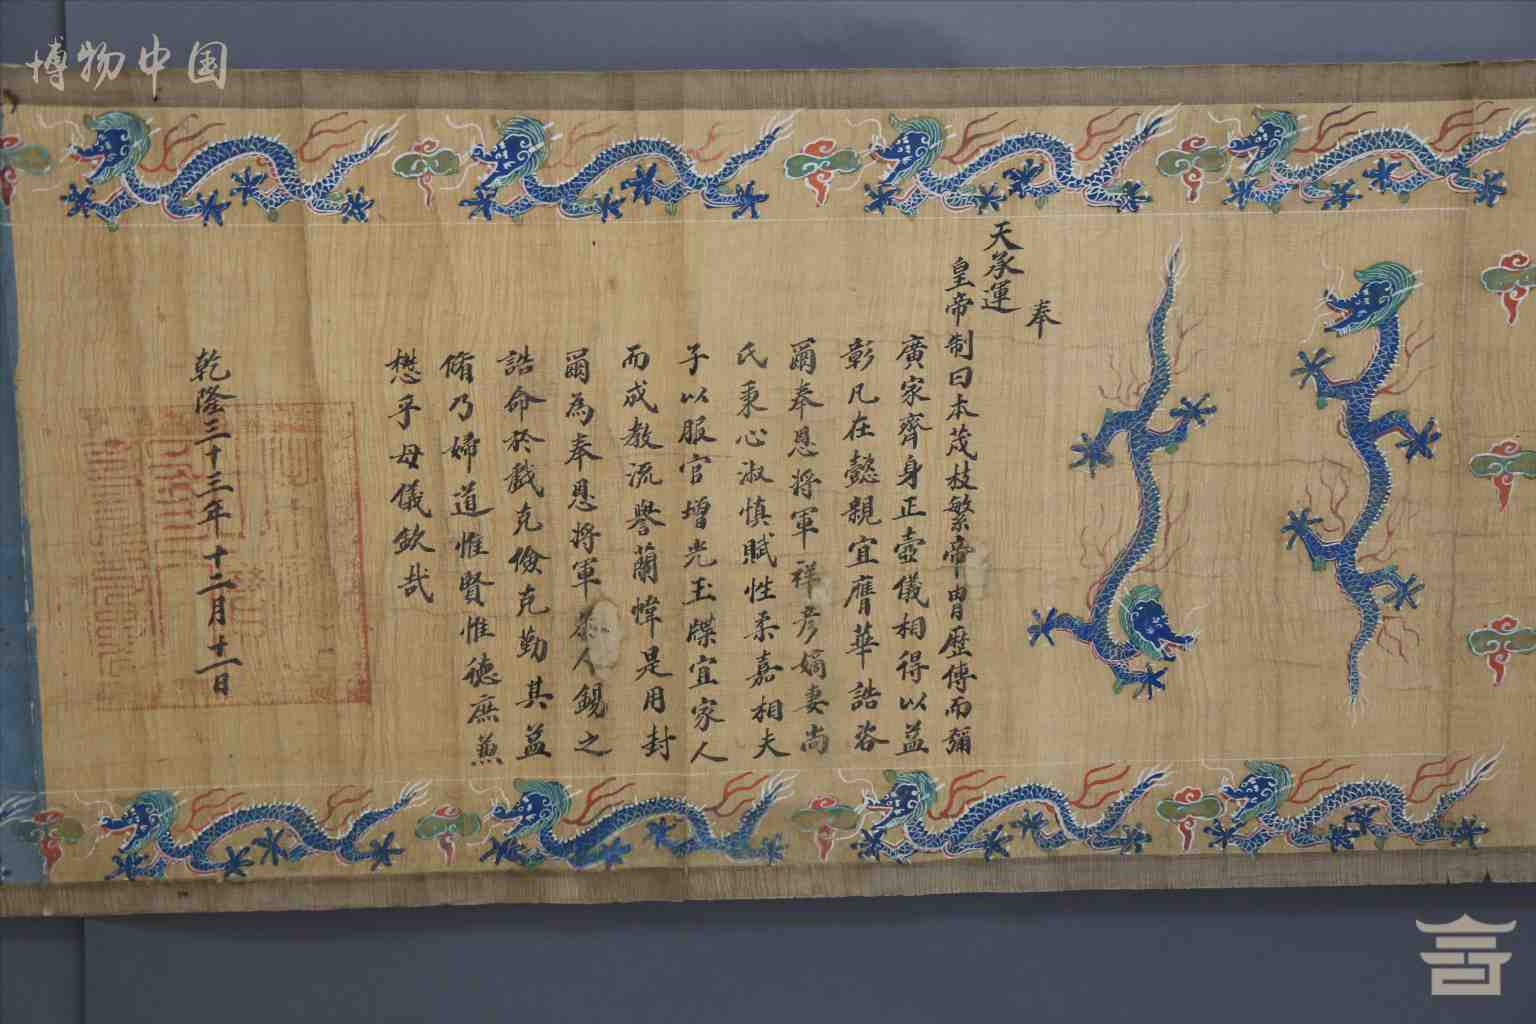 博物中国
奉
天承運
皇帝制曰本茂枝繁帝胄歷傳而彌
廣家齊身正壼儀相得以益
彰凡在懿親宜膺華誥咨
爾奉恩將軍祥彥嫡妻尚
氏秉心淑慎賦性柔嘉相夫
子以服官增光玉牒宜家人
而成教流譽蘭幃是用封
爾為奉恩將軍恭人錫之
誥命於戲克儉克勤其益
脩乃婦道惟賢惟德庶無
懋乎母儀欽哉
乾隆三十三年十二月十一日